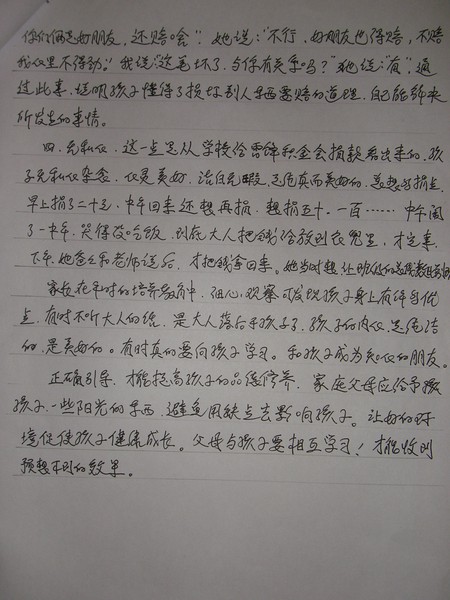 你们俩是好朋友，还赔啥”。她说：“不行，好朋友也得赔，不赔
我心里不得劲。”我说：“这笔坏了，与你有关系吗？”她说：“有”，通
过此事，说明孩子懂得了损坏别人东西要赔的道理，自己能解决
所发生的事情。
四、无私心，这一点是从学校给雷锋积金会捐款看出来的，孩
子无私心杂念，心灵美好，洁白无暇，是纯真而美好的，总想多捐点，
早上捐了二十元，中午回来还想再捐，想捐五十、一百……中午闹
了一中午，哭得没吃饭，到底大人把钱给放到衣兜里，才完事，
下午，她爸爸和老师说后，才把钱拿回来。她当时想让班级的
家长在平时的培养教育中，细心观察可发现孩子身上有许多优
点，有时不听大人的话，是大人落后于孩子了，孩子的内心是纯洁
的，是美好的。有时真的要向孩子学习。和孩子成为知心的朋友。
正确引导，才能提高孩子的品德修养，家庭父母应给予孩
孩子一些阳光的东西，避免用缺点去影响孩子。让好的环
境促使孩子健康成长。父母与孩子要相互学习！才能收到
预想不到的效果。